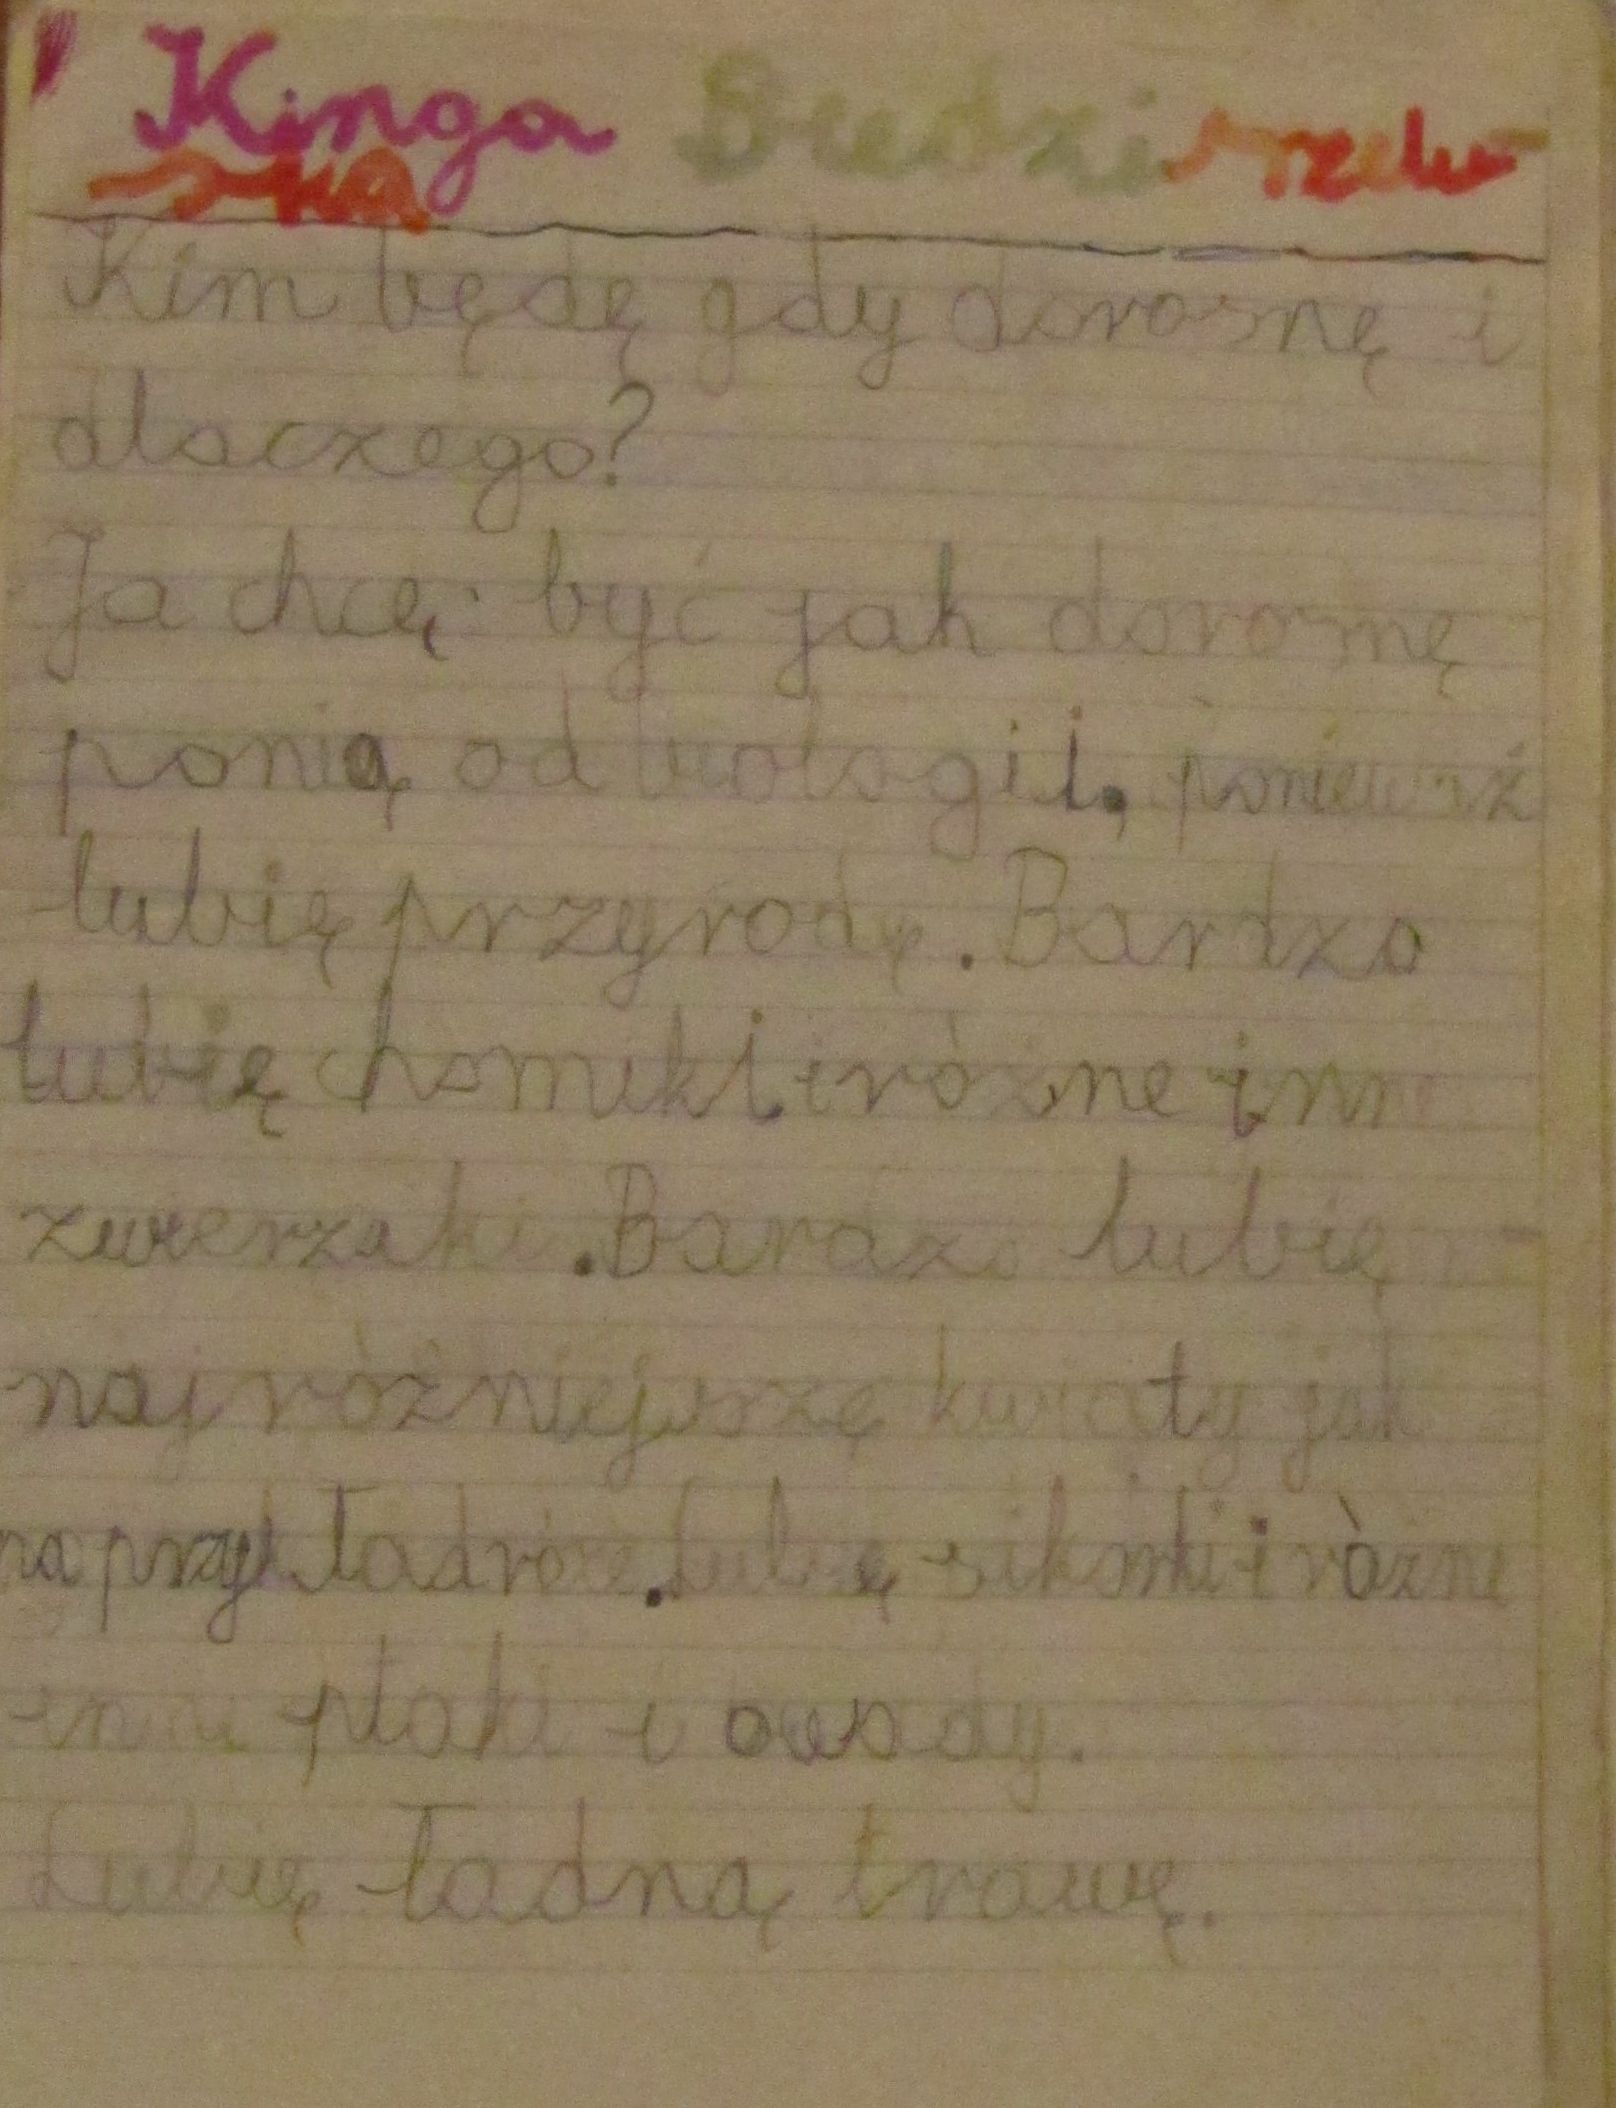 Kinga Siedziszew
ska
Kim będę gdy dorosnę i
dlaczego?
Ja chcę być jak dorosnę
panią od biologii, ponieważ
lubię przyrodę. Bardzo
lubię chomiki i różne inne
zwierzaki. Bardzo lubię
najróżniejszę kwiaty jak
na przykład róże. Lubię sikorki i różne
inne ptaki i owady.
Lubię ładną trawę.